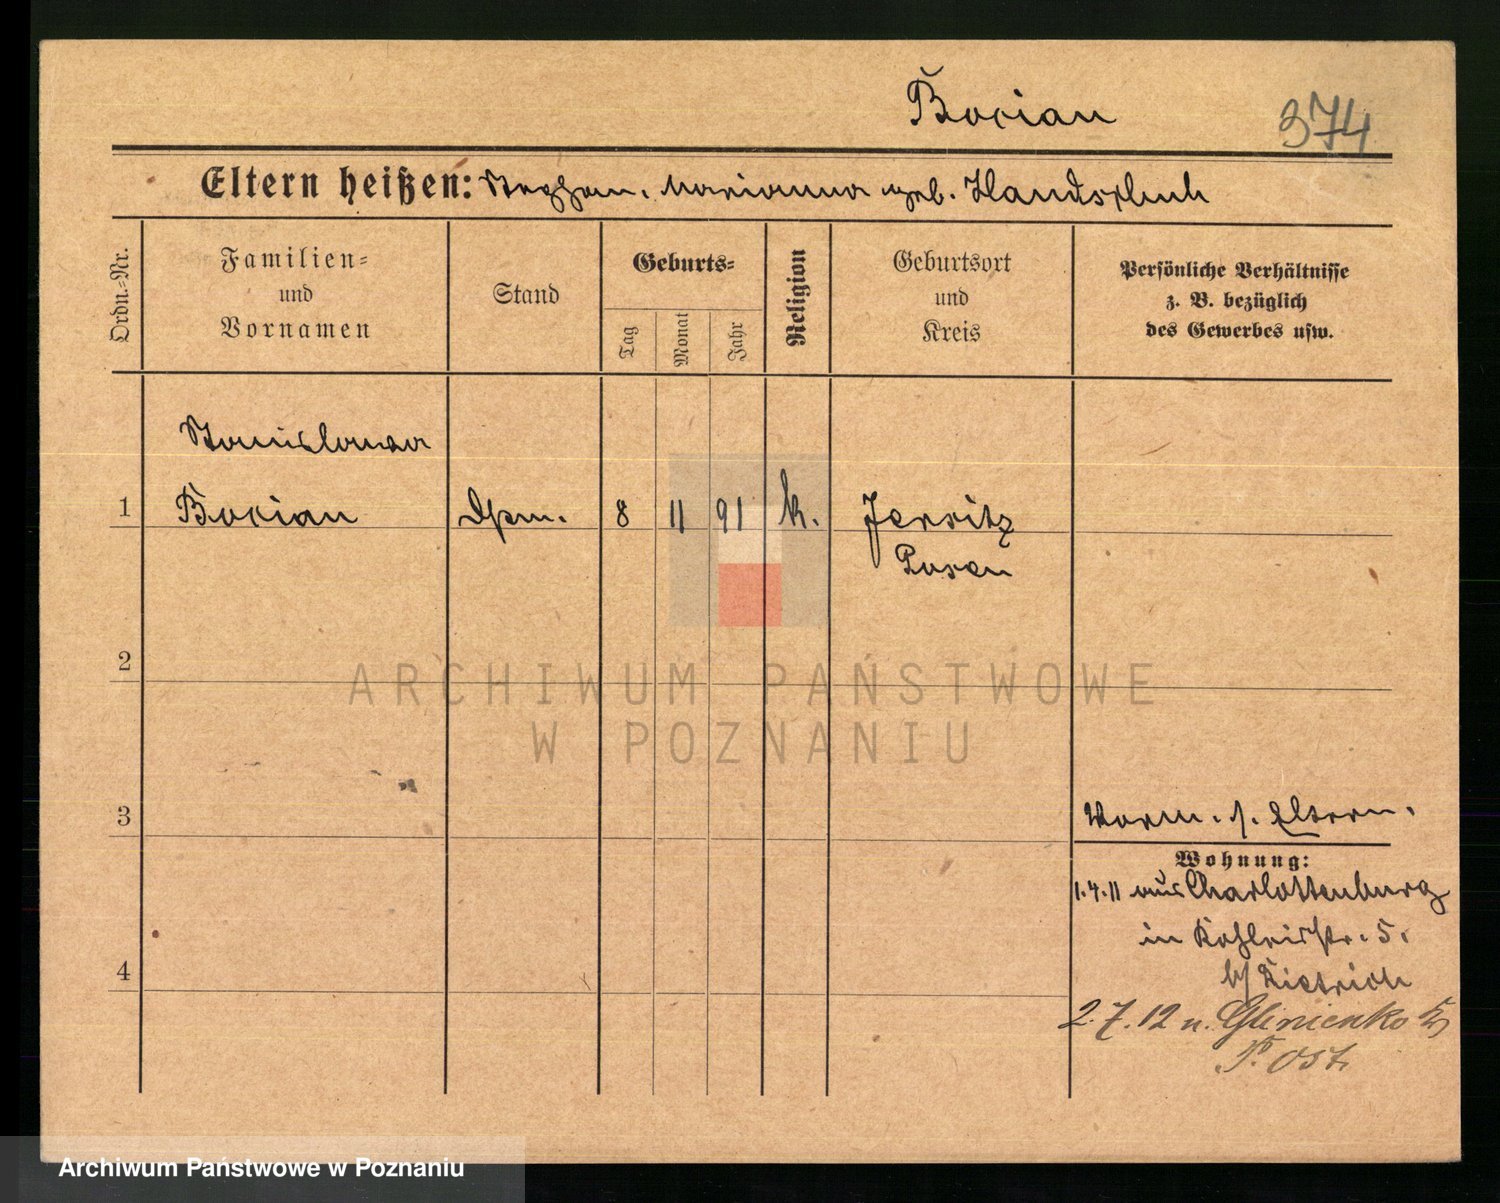 Bocian
374
Eltern heißen: Stephan. Marianna geb. Handschuh
Ordn.-Nr.
Familien-
und
Vornamen
Stand
Geburts-
Tag
Monat
Jahr
Religion
Geburtsort
und
Kreis
Persönliche Verhältnisse
z. B. bezüglich
des Gewerbes usw.
Stanislawa
1 Bocian 8 11 91 k. Jersitz
Posen
2
ARCHIWUM PAŃSTWOWE
W POZNANIU
3
Vorm. s. Eltern.
Wohnung:
1.4.11 aus Charlottenburg
in 5.
b/ Dietrich
4
2.7.12 n. Glinienko
P. Ost.
Archiwum Państwowe w Poznaniu